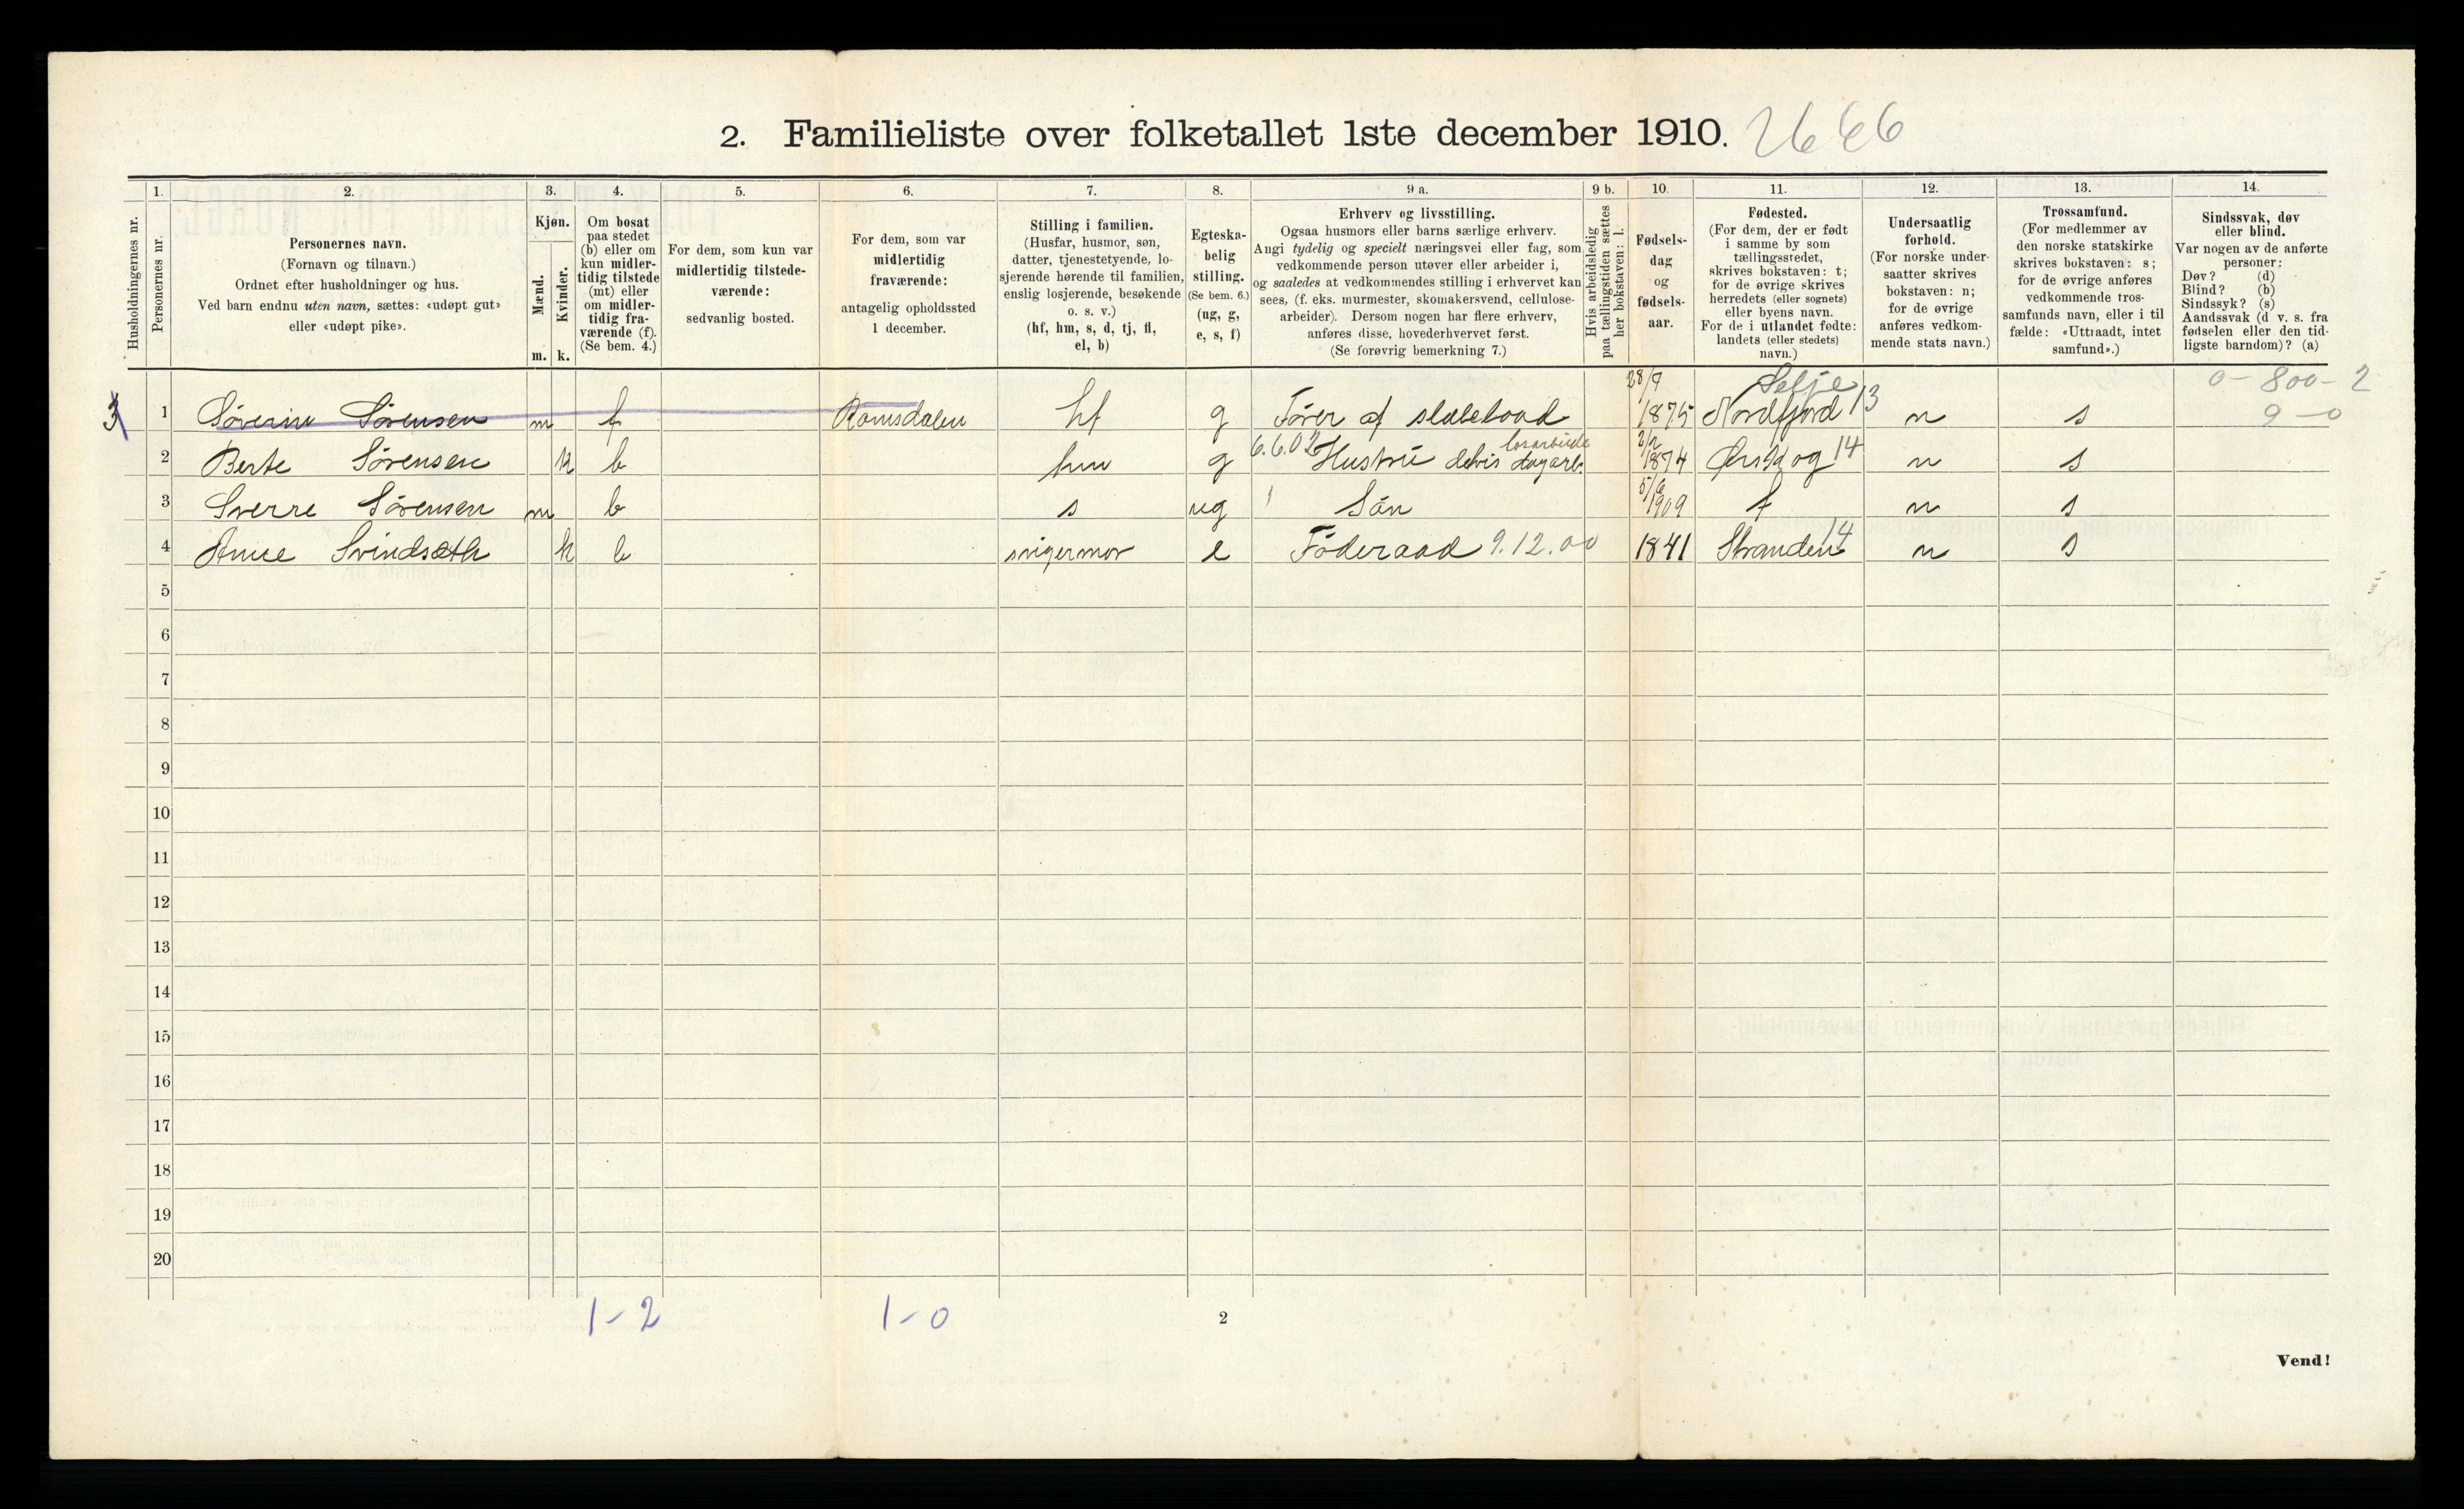 2. Familieliste over folketallet 1ste december 1910. 2666
1. 2. 3. 4. 5. 6. 7. 8. 9 a. 9 b. 10. 11. 12. 13. 14.
Husholdningernes nr.
Personernes nr.
Personernes navn.
(Fornavn og tilnavn.)
Ordnet efter husholdninger og hus.
Ved barn endnu uten navn, sættes: «udøpt gut»
eller «udøpt pike».
Kjøn.
Mænd.
m.
Kvinder.
k.
Om bosat
paa stedet
(b) eller om
kun midler-
tidig tilstede
(mt) eller
om midler-
tidig fra-
værende (f).
(Se bem. 4.)
For dem, som kun var
midlertidig tilstede-
værende:
sedvanlig bosted.
For dem, som var
midlertidig
fraværende:
antagelig opholdssted
1 december.
Stilling i familien.
(Husfar, husmor, søn,
datter, tjenestetyende, lo-
sjerende hørende til familien,
enslig losjerende, besøkende
o. s. v.)
(hf, hm, s, d, tj, fl,
el, b)
Egteska-
belig
stilling.
(Se bem. 6.)
(ug, g,
e, s, f)
Erhverv og livsstilling.
Ogsaa husmors eller barns særlige erhverv.
Angi tydelig og specielt næringsvei eller fag, som
vedkommende person utøver eller arbeider i,
og saaledes at vedkommendes stilling i erhvervet kan
sees, (f. eks. murmester, skomakersvend, cellulose-
arbeider). Dersom nogen har flere erhverv,
anføres disse, hovederhvervet først.
(Se forøvrig bemerkning 7.)
Hvis arbeidsledig
paa tællingstiden sættes
her bokstaven: l.
Fødsels-
dag
og
fødsels-
aar.
Fødested.
(For dem, der er født
i samme by som
tællingsstedet,
skrives bokstaven: t;
for de øvrige skrives
herredets (eller sognets)
eller byens navn.
For de i utlandet fødte:
landets (eller stedets)
navn.)
Undersaatlig
forhold.
(For norske under-
saatter skrives
bokstaven: n;
for de øvrige
anføres vedkom-
mende stats navn.)
Trossamfund.
(For medlemmer av
den norske statskirke
skrives bokstaven: s;
for de øvrige anføres
vedkommende tros-
samfunds navn, eller i til
fælde: «Uttraadt, intet
samfund».)
Sindssvak, døv
eller blind.
Var nogen av de anførte
personer:
Døv? (d)
Blind? (b)
Sindssyk? (s)
Aandssvak (d v. s. fra
fødselen eller den tid-
ligste barndom)? (a)
28/9 Selje 0-800-2
3 1 Søverin Sørensen m f Romsdalen hf g Fører af slæbebaad 1875 Nordfjord 13 n s 9-0
2 Berte Sørensen k b hm g 6.6.02 Hustru delvis dagarb. 1874 Ørskog 14 n s
3 Sverre Sørensen m b s ug Søn 5/6 1909 t n s
4 Anne Svindseth k b svigermor e Föderaad 9.12.00 1841 Stranden 14 n s
5
6
7
8
9
10
11
12
13
14
15
16
17
18
19
20
1-2 1-0 2
Vend!